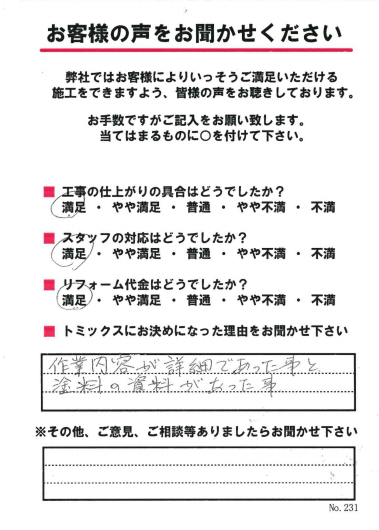 お客様の声をお聞かせください
弊社ではお客様によりいっそうご満足いただける
施工をできますよう、皆様の声をお聴きしております。
お手数ですがご記入をお願い致します。
当てはまるものに○を付けて下さい。
■ 工事の仕上がりの具合はどうでしたか？
満足 ・ やや満足 ・ 普通 ・ やや不満 ・ 不満
■ スタッフの対応はどうでしたか？
満足 ・ やや満足 ・ 普通 ・ やや不満 ・ 不満
■ リフォーム代金はどうでしたか？
満足 ・ やや満足 ・ 普通 ・ やや不満 ・ 不満
■ トミックスにお決めになった理由をお聞かせ下さい
作業内容が詳細であった事と
塗料の資料があった事
※その他、ご意見、ご相談等ありましたらお聞かせ下さい
No. 231